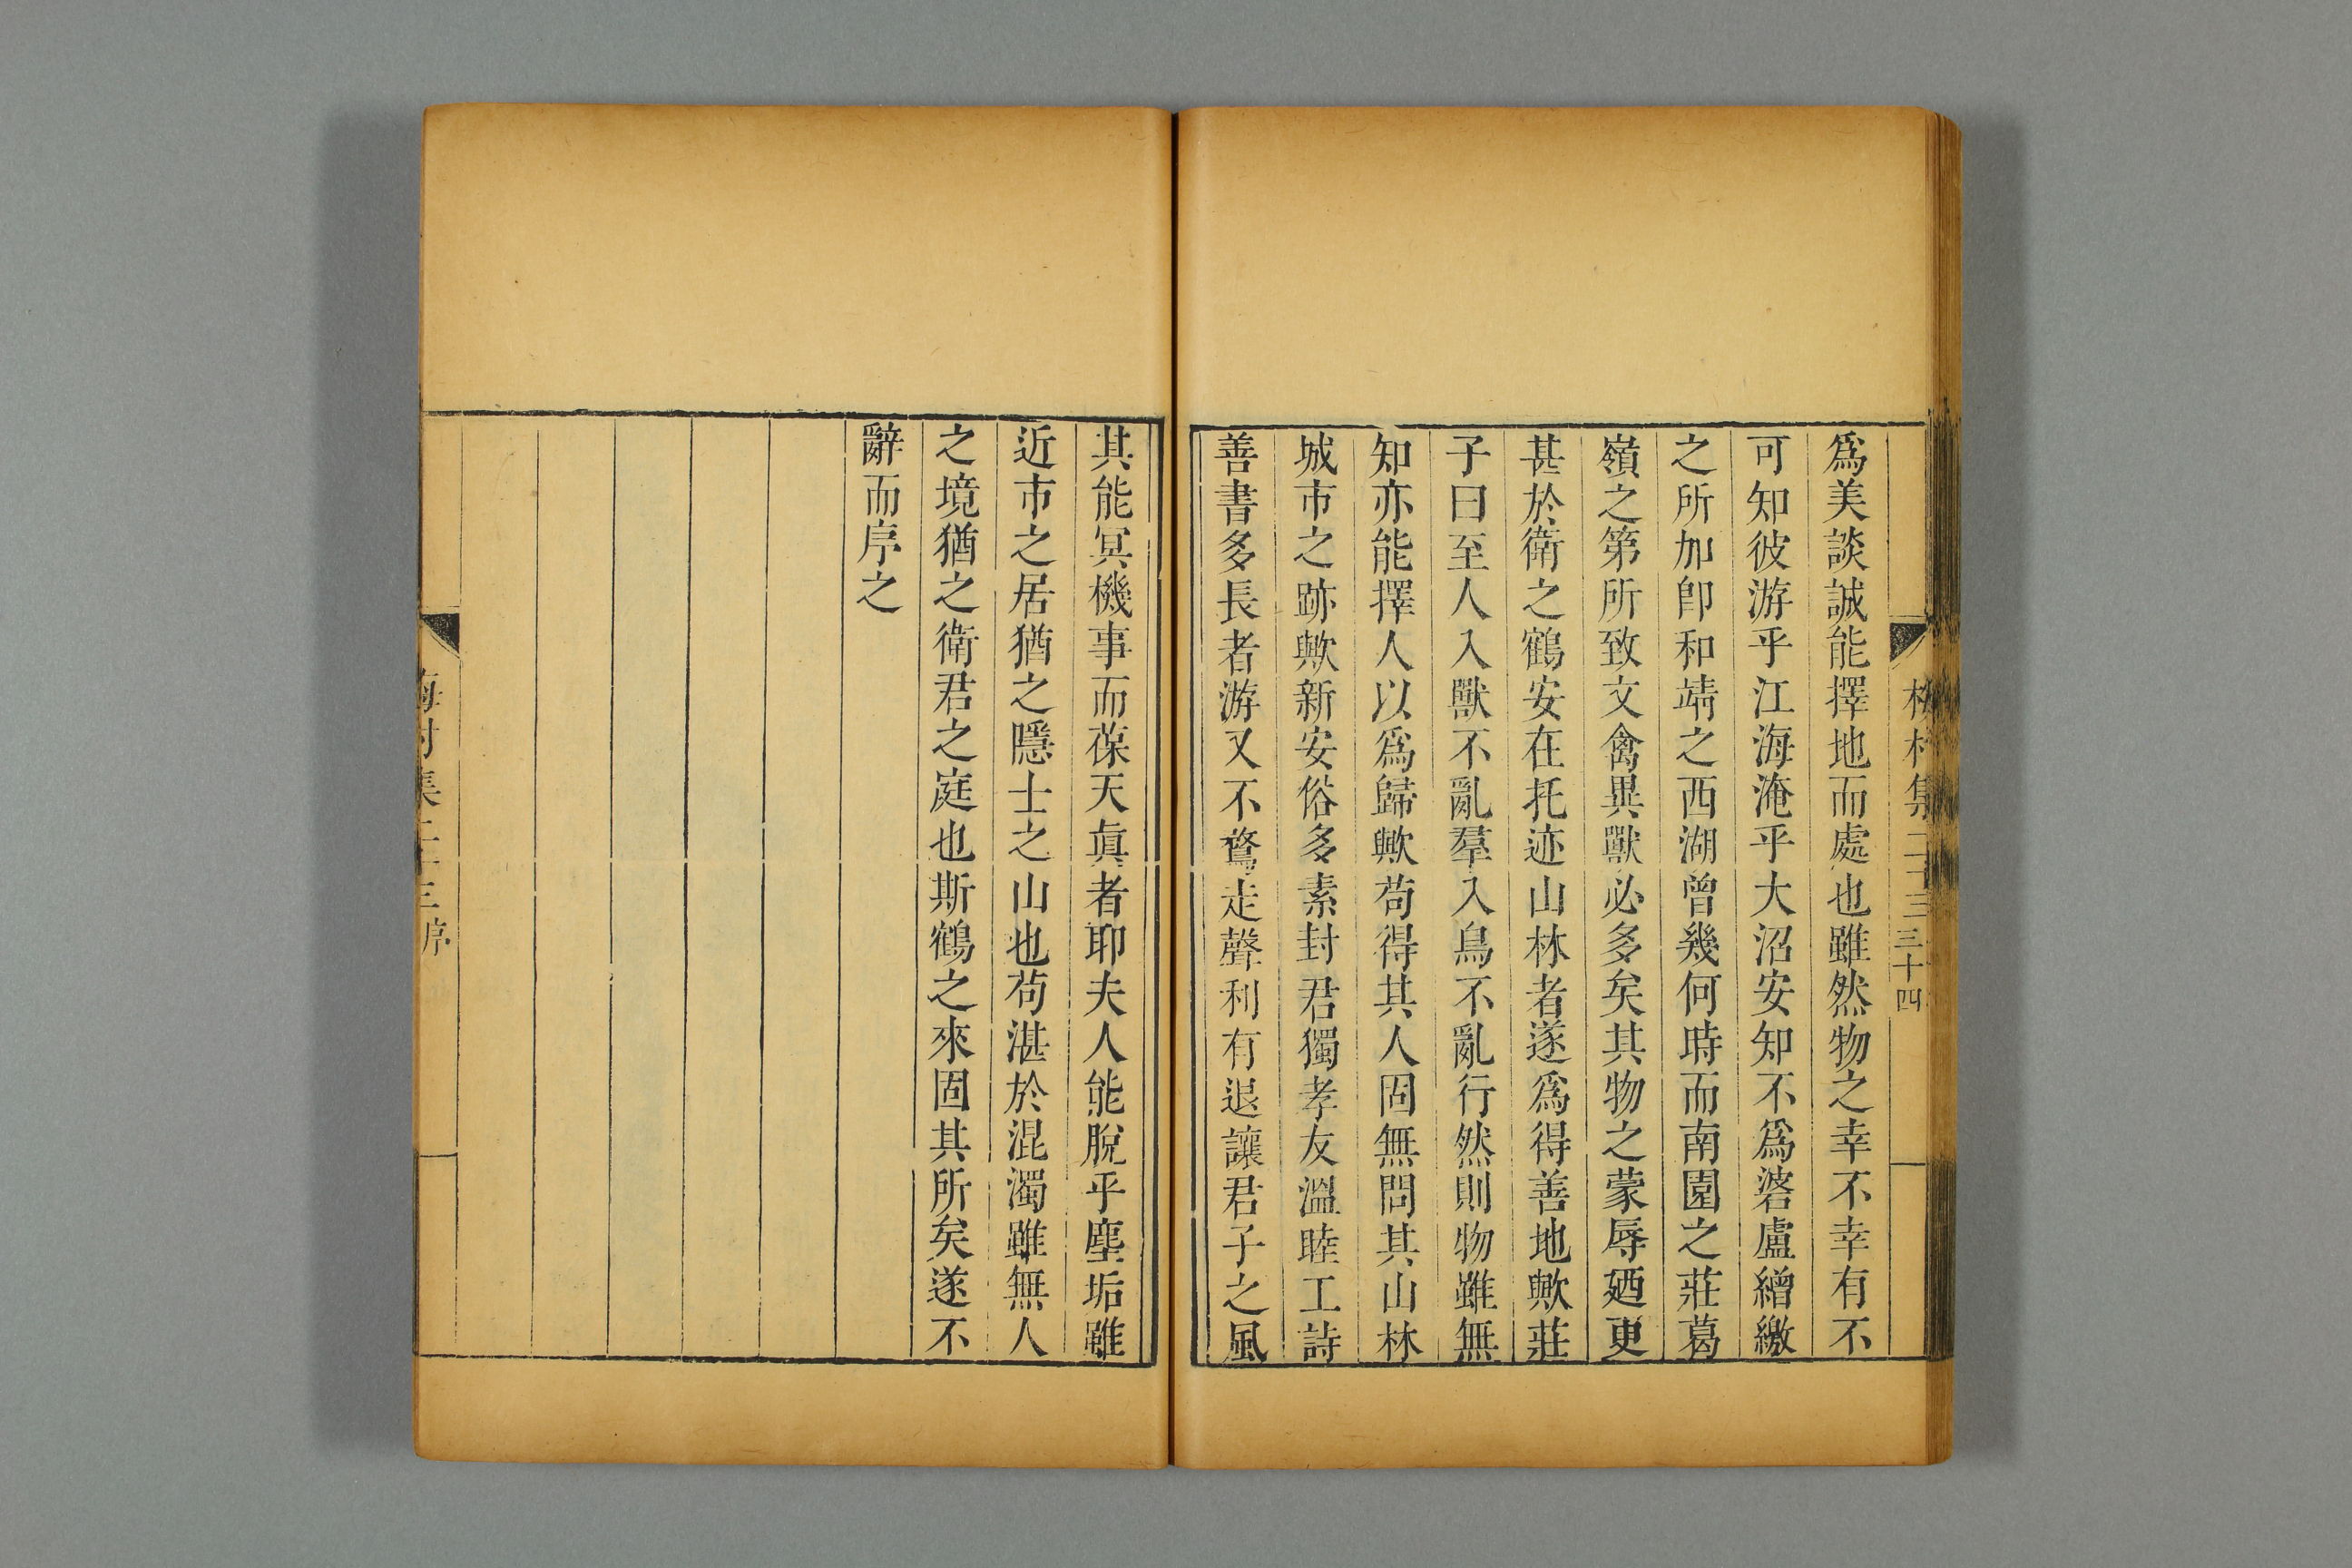 梅村集二十三
三十四
爲美談誠能擇地而處也雖然物之幸不幸有不
可知彼游乎江海淹乎大沼安知不爲碆盧繒繳
之所加卽和靖之西湖曾幾何時而南園之莊葛
嶺之第所致文禽異獸必多矣其物之蒙辱廼更
甚於衛之鶴安在托迹山林者遂爲得善地歟莊
子曰至人入獸不亂羣入鳥不亂行然則物雖無
知亦能擇人以爲歸歟苟得其人固無問其山林
城市之跡歟新安俗多素封君獨孝友溫睦工詩
善書多長者游又不騖走聲利有退讓君子之風
其能冥機事而葆天眞者耶夫人能脫乎塵垢雖
近市之居猶之隱士之山也苟湛於混濁雖無人
之境猶之衛君之庭也斯鶴之來固其所矣遂不
辭而序之
梅村集二十三序